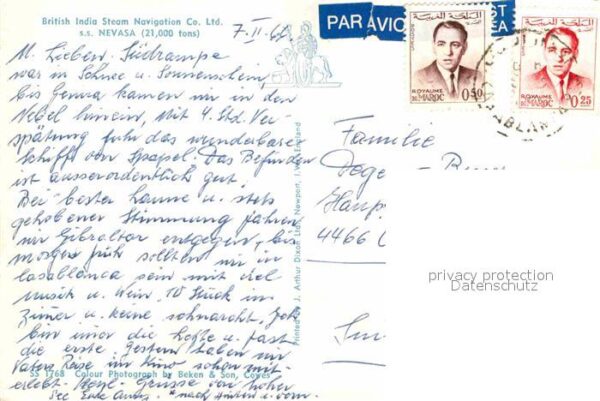 British India Steam Navigation Co. Ltd.
s.s. NEVASA (21,000 tons)
7. II. 68
M. Lieben, Südrampe
war in Schnee u. Sonnenschein,
bis Genua kamen wir in den
Nebel hinein, mit 4 Std. Ver-
spätung fuhr das wunderbare
Schiff von Stapel. Das Befinden
ist ausserordentlich gut.
Bei bester Laune u. stets
gehobener Stimmung fahren
wir Gibraltar entgegen, bis
morgen früh sollten wir in
Casablanca sein mit viel
Musik u. Wein. 10 Stück im
Zimmer u. keine schnarcht. Ich
bin immer die letzte u. fast
die erste. Gestern haben wir
Vaters Reise im Kino schon mit-
erlebt. Grüsse von hoher
See Eure
nach hinten u. vorn.
SS 1768 Colour Photograph by Beken & Son, Cowes
Printed by J. Arthur Dixon Ltd., Newport, I.W., England
PAR AVION
POST
ROYAUME
DU MAROC
0,50
ROYAUME
DU MAROC
0,25
المملكة المغربية
المملكة المغربية
Familie
4466
privacy protection
Datenschutz